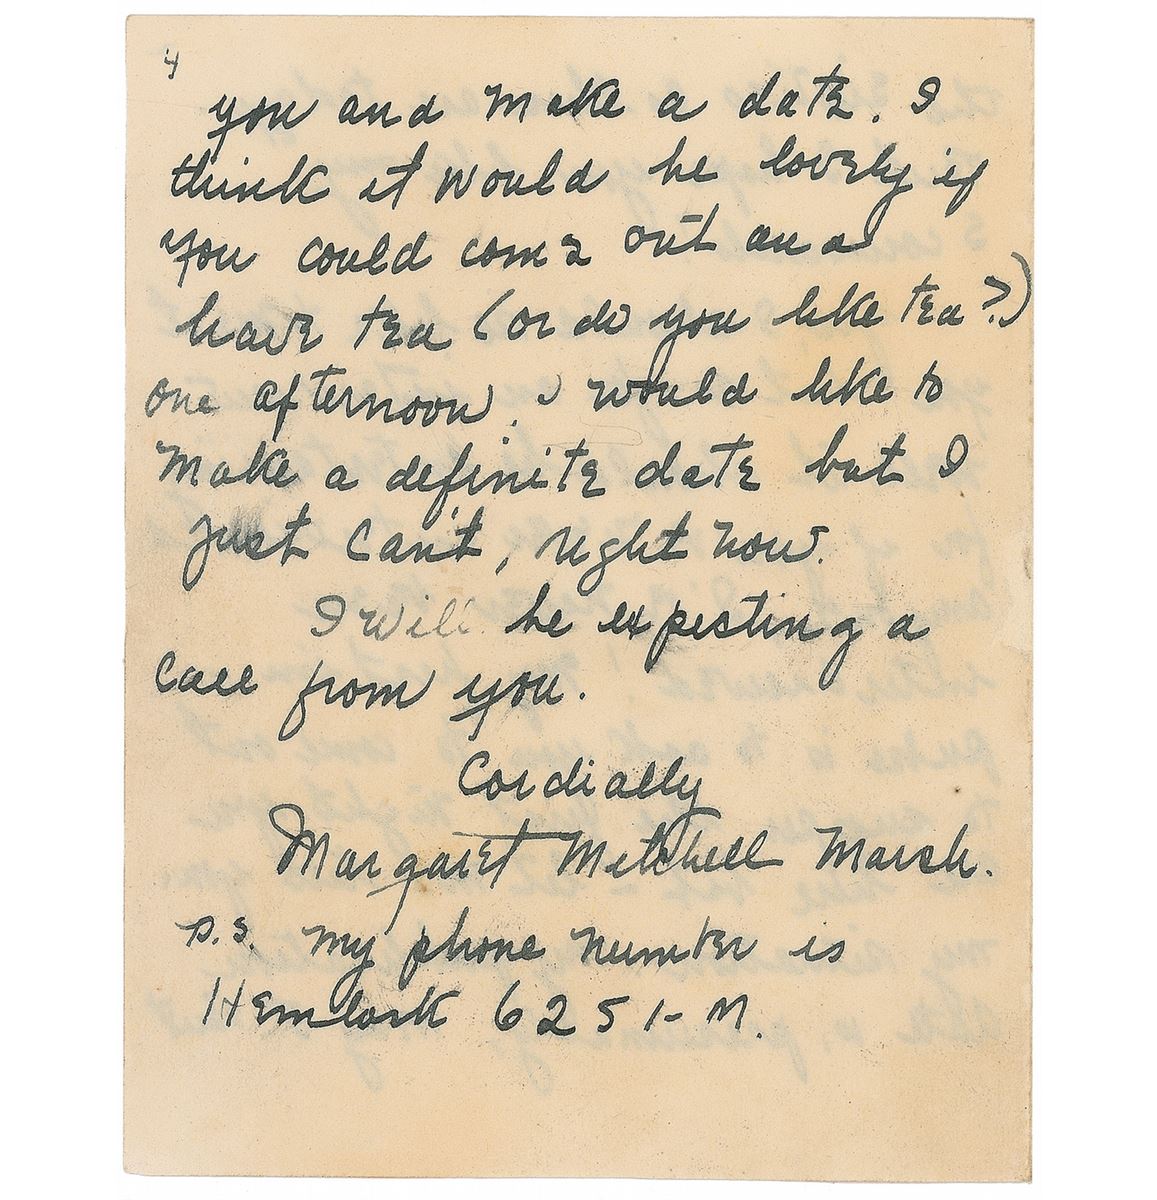 4
you and make a date. I
think it would be lovely if
you could come out an a
have tea (or do you like tea?)
one afternoon. I would like to
make a definite date but I
just can't, right now.
I will be expecting a
call from you.
Cordially
Margaret Mitchell Marsh.
P.S. my phone number is
Hemlock 6251-M.